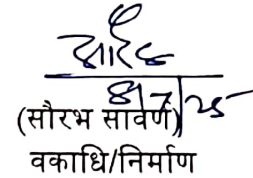 8/7/25
(सौरभ सावर्ण)
वकाधि/निर्माण